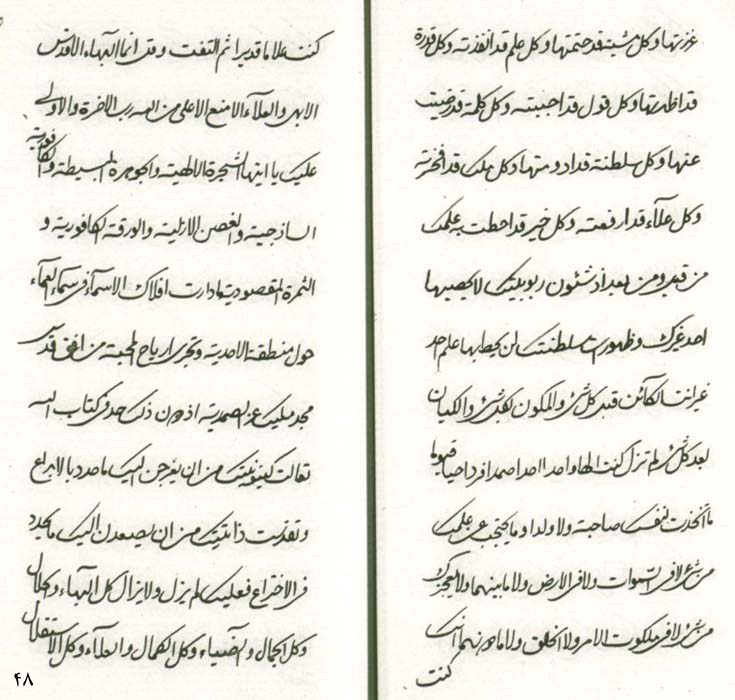 عزتها وكل مشية قد حتمتها وكل علم قد انفذته وكل قدرة
قد اظهرتها وكل قول قد احببته وكل كلمة قد رضيت
عنها وكل سلطنة قد ادومتها وكل ملك قد افخرته
وكل علآء قد ارفعته وكل خير قد احطت به علمك
من قبل ومن بعد اذ شئون ربوبيتك لا يحصيها
احد غيرك وظهورات سلطنتك لن يحيط بها علم احد
غير انت الكائن قبل كل شئ والمكون لكل شئ والكيان
بعد كل شئ لم تزل كنت الها واحدا احدا صمدا فردا حيا قيوما
ما اتخذت لنفسك صاحبة ولا ولدا وما يحتجب عن علمك
من شئ لا في السموات ولا في الارض ولا ما بينهما ولا يعجزك
من شئ لا في ملكوت الامر ولا الخلق ولا ما دونهما انك
كنت
كنت علاما قديرا ثم التفت وقل انما البهاء الاقدس
الابهى والعلآء الامنع الاعلى من الله رب الاخرة والاولى
عليك يا ايتها الشجرة الالهية والجوهرة البسيطة والكافورية
الساذجية والغصن الازلية والورقة الكافورية و
الثمرة المقصودية ما دارت افلاك الاسمآء في سمآء العمآء
حول منطقة الاحدية وتجرى ارياح المحبة من افق قدس
مجد مليك عز الصمدية اذ دون ذلك حد في كتاب الله
تعالت كينونيتك من ان يعرجن اليك ما حدد بالابداع
وتقدست ذاتيتك من ان يصعدن اليك ما يحدد
في الاختراع فعليك لم يزل ولا يزال كل البهاء وكل الجلال
وكل الجمال والضياء وكل الكمال والعلآء وكل الاستقلال
۴۸